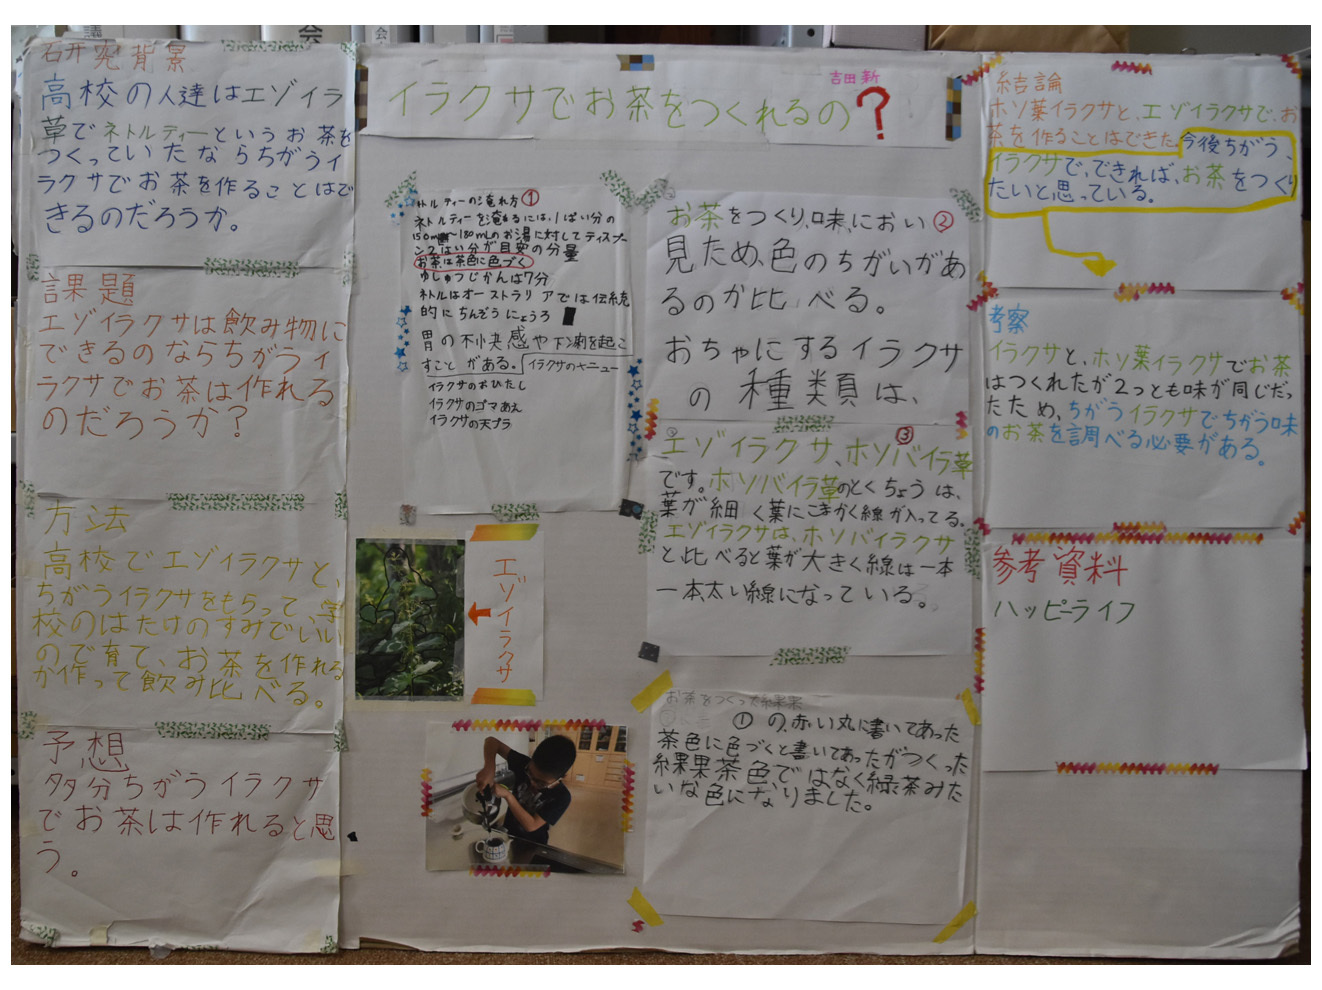 研究背景
高校の人達はエゾイラ
草でネトルティーというお茶を
つくっていたならちがうイ
ラクサでお茶を作ることはで
きるのだろうか。
課題
エゾイラクサは飲み物に
できるのならちがうイ
ラクサでお茶は作れる
のだろうか?
方法
高校でエゾイラクサと、
ちがうイラクサをもらって、学
校のはたけのすみでいい
ので育て、お茶を作れる
か作って飲み比べる。
予想
多分ちがうイラクサ
でお茶は作れると思
う。
吉田新
イラクサでお茶をつくれるの?
ネトルティーの淹れ方①
ネトルティーを淹れるには、1ぱい分の
150ml~180mLのお湯に対してティスプー
ン2はい分が目安の分量
お茶は茶色に色づく
ゆしゅつじかんは7分
ネトルはオーストラリアでは伝統
的にちんぞうにょうろ
胃の不快感や下痢を起こ
すことがある。イラクサのメニュー
イラクサのおひたし
イラクサのゴマあえ
イラクサの天プラ
エゾイラクサ
お茶をつくり、味、におい②
見ため、色のちがいがあ
るのか比べる。
おちゃにするイラクサ
の種類は、
③
エゾイラクサ、ホソバイラ草
です。ホソバイラ草のとくちょうは、
葉が細く葉にこまかく線が入ってる。
エゾイラクサは、ホソバイラクサ
と比べると葉が大きく線は一本
一本太い線になっている。
お茶をつくった結果
①の赤い丸に書いてあった
茶色に色づくと書いてあったがつくった
結果茶色ではなく緑茶みた
いな色になりました。
結論
ホソ葉イラクサと、エゾイラクサで、お
茶を作ることはできた。今後ちがう、
イラクサで、できれば、お茶をつくり
たいと思っている。
考察
イラクサと、ホソ葉イラクサでお茶
はつくれたが2つとも味が同じだっ
たため、ちがうイラクサでちがう味
のお茶を調べる必要がある。
参考資料
ハッピーライフ